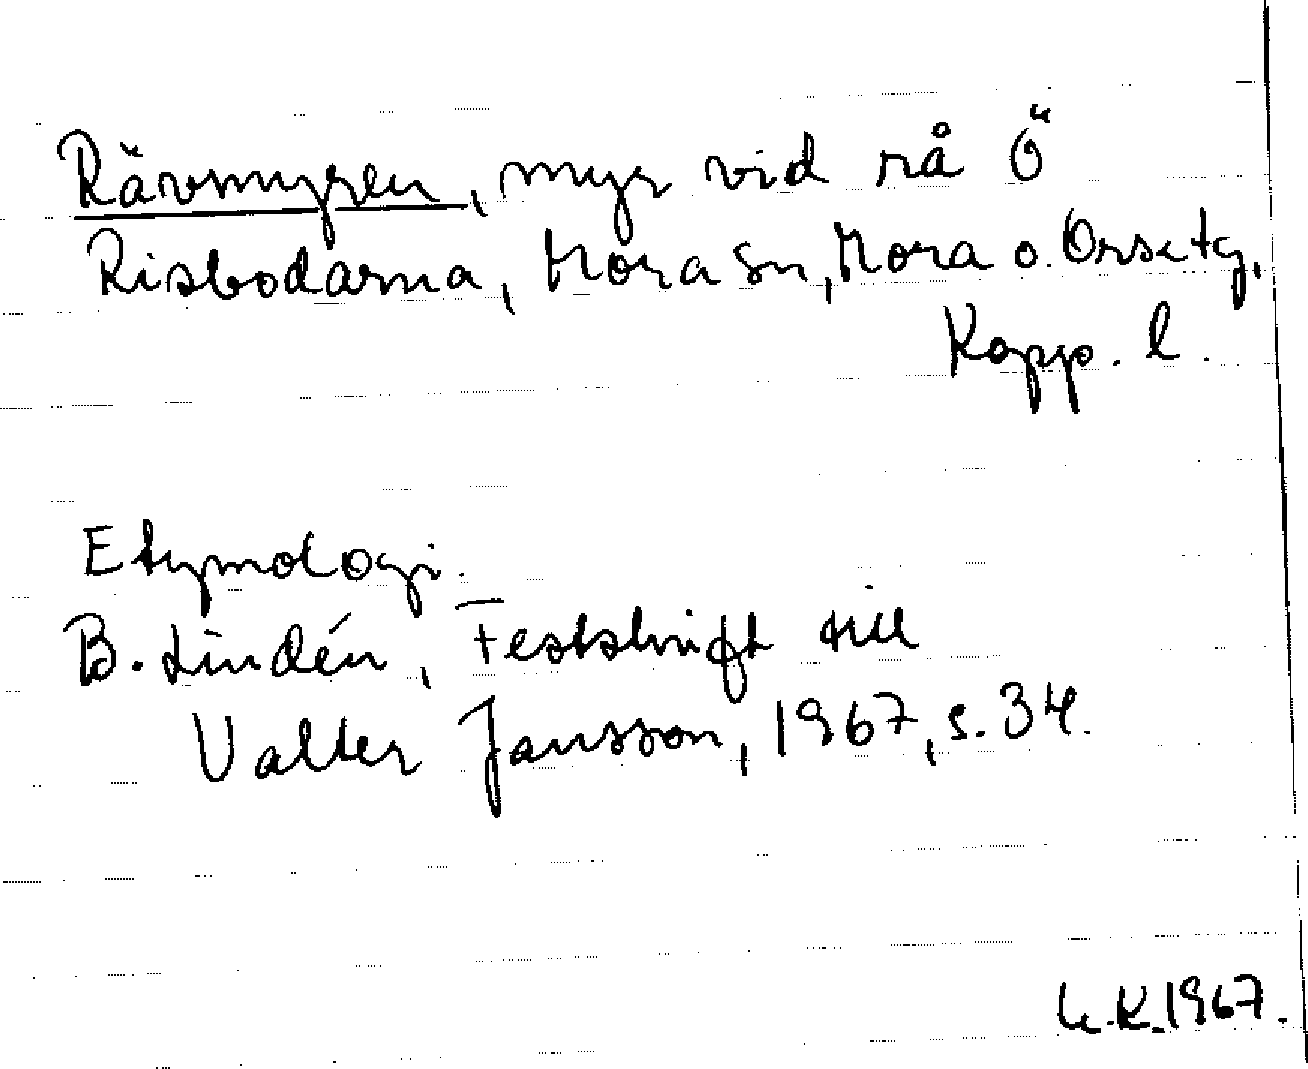 Rävmyren, myr vid rå Ö
Risbodarna, Mora sn, Mora o. Orsa tg,
Kopp. l.
Etymologi.
B. Lindén, Festskrift till
Valter Jansson, 1967, s. 34.
K. 1967.